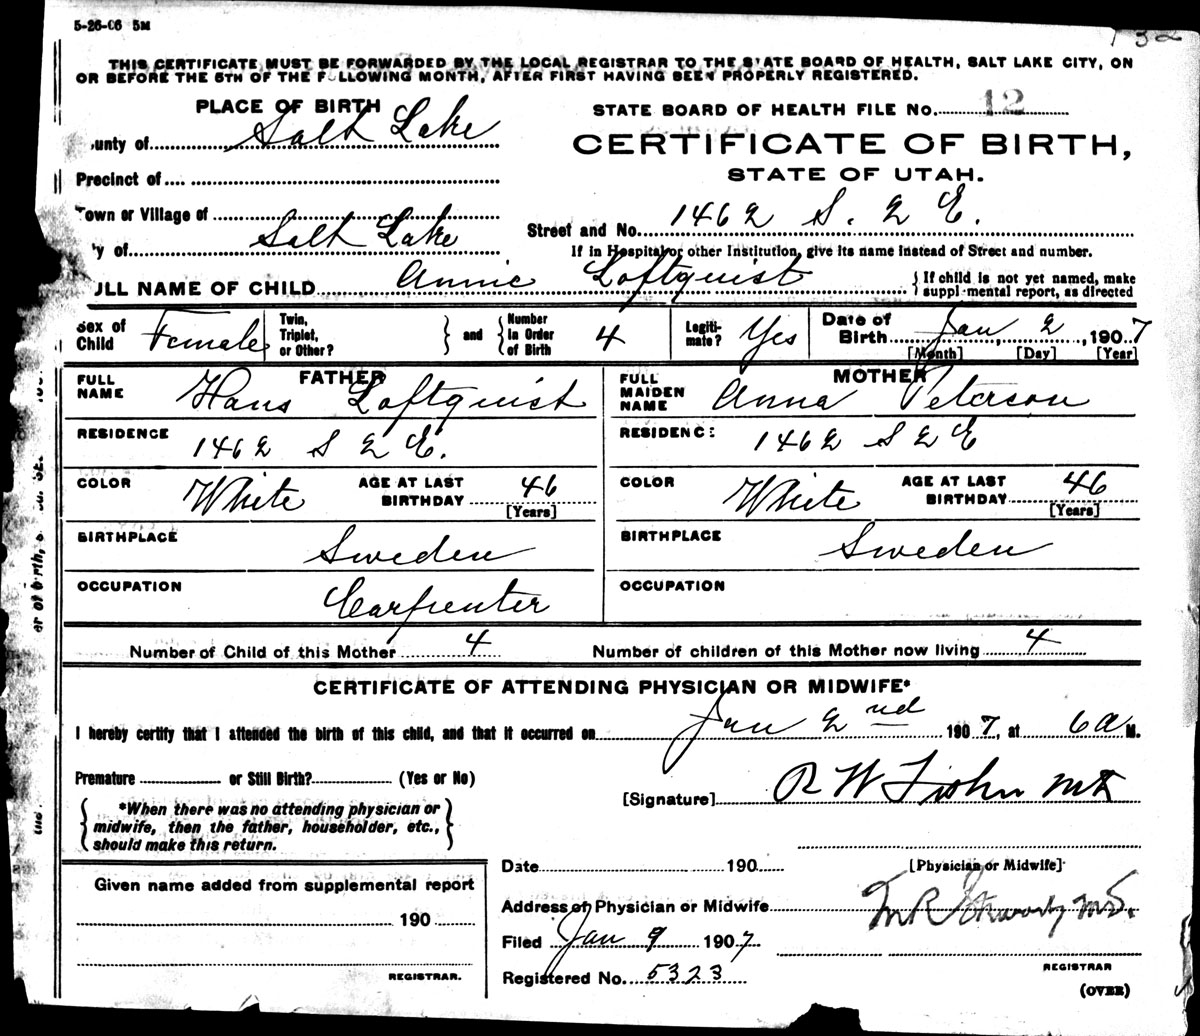 5-26-06 5M
THIS CERTIFICATE MUST BE FORWARDED BY THE LOCAL REGISTRAR TO THE STATE BOARD OF HEALTH, SALT LAKE CITY, ON
OR BEFORE THE 5TH OF THE F LLOWING MONTH, AFTER FIRST HAVING BEEN PROPERLY REGISTERED.
PLACE OF BIRTH
unty of Salt Lake
Precinct of
Town or Village of
y of Salt Lake
STATE BOARD OF HEALTH FILE No. 12
CERTIFICATE OF BIRTH,
STATE OF UTAH.
Street and No. 1462 S. 2 E.
If in Hospital or other Institution, give its name instead of Street and number.
ULL NAME OF CHILD Annie Loftquist { If child is not yet named, make
suppl mental report, as directed
Sex of Child Female Twin, Triplet, or Other? } and { Number in Order of Birth 4 Legiti-mate? Yes Date of Birth Jan 2, 1907
[Month] [Day] [Year]
FATHER
FULL NAME Hans Loftquist
RESIDENCE 1462 S 2 E.
COLOR White AGE AT LAST BIRTHDAY 46
[Years]
BIRTHPLACE Sweden
OCCUPATION Carpenter
MOTHER
FULL MAIDEN NAME Anna Peterson
RESIDENCE 1462 S 2 E
COLOR White AGE AT LAST BIRTHDAY 46
[Years]
BIRTHPLACE Sweden
OCCUPATION
Number of Child of this Mother 4 Number of children of this Mother now living 4
CERTIFICATE OF ATTENDING PHYSICIAN OR MIDWIFE*
I hereby certify that I attended the birth of this child, and that it occurred on Jan 2nd 1907, at 6 a M.
Premature or Still Birth? (Yes or No)
{ *When there was no attending physician or
midwife, then the father, householder, etc.,
should make this return. }
[Signature] R W
[Physician or Midwife]
Given name added from supplemental report
190
REGISTRAR.
Date 190
Address of Physician or Midwife
Filed Jan 9 1907
Registered No. 5323
M R
REGISTRAR
(OVER)